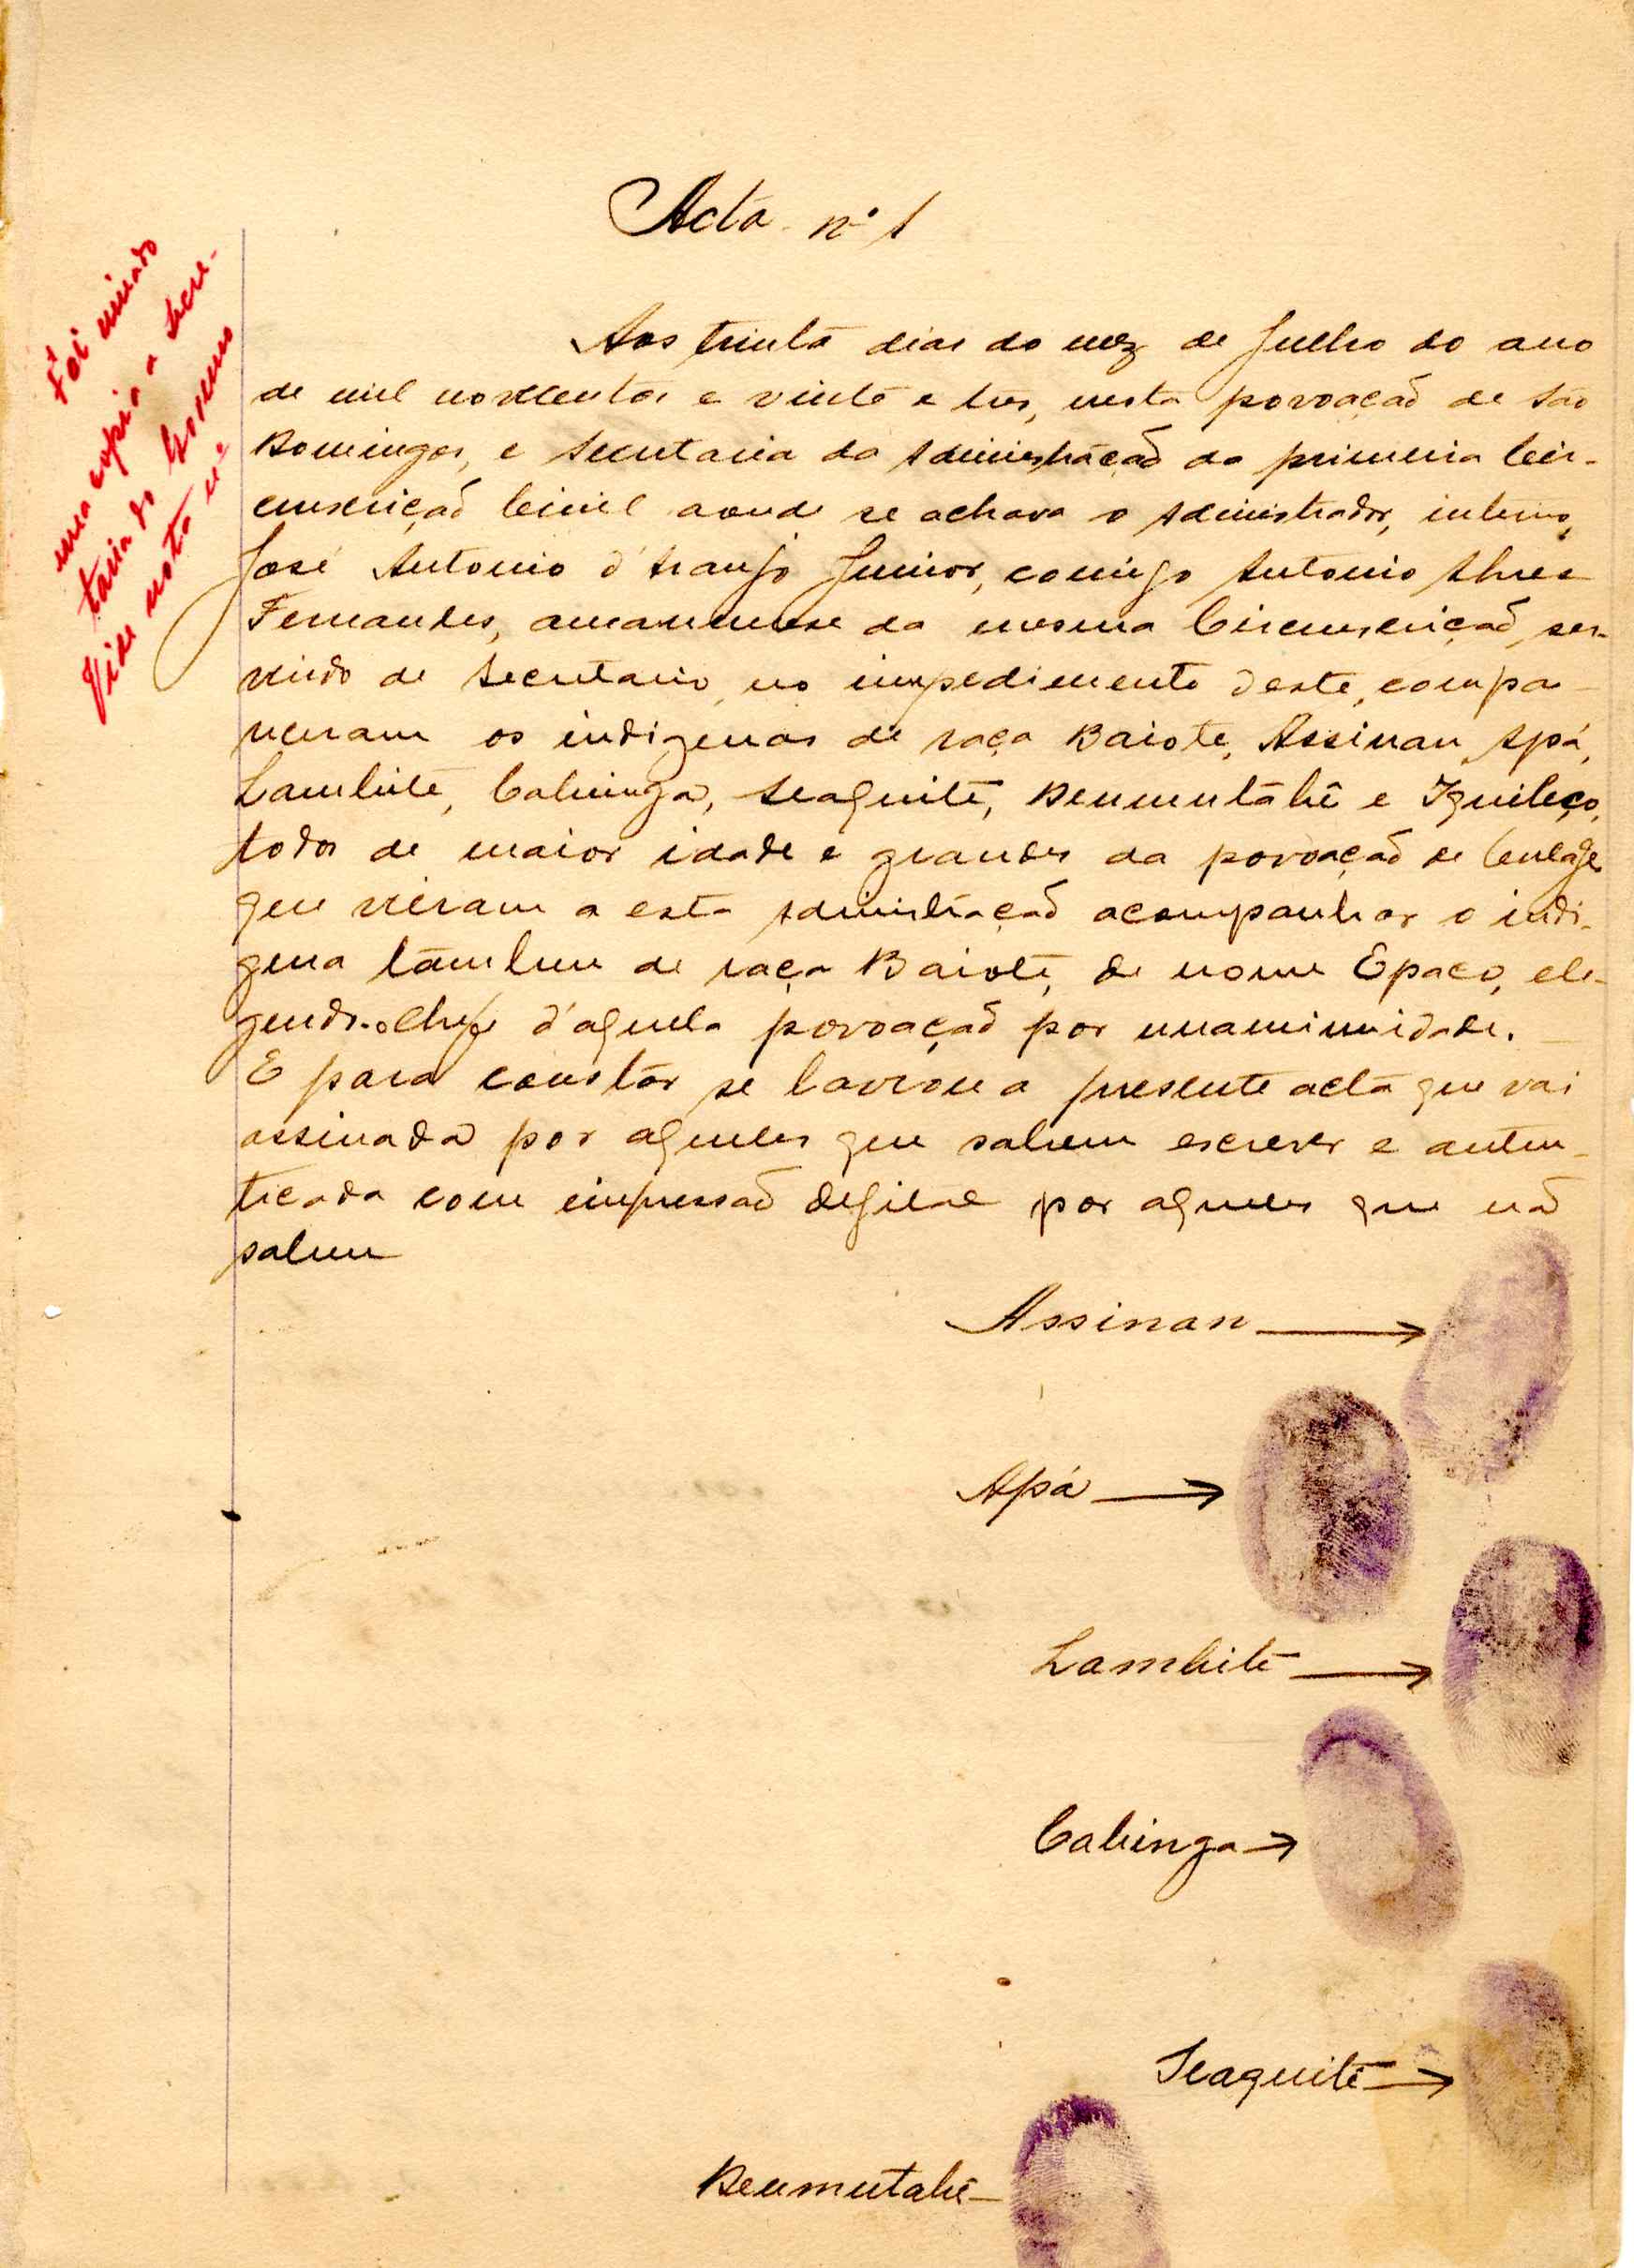 Acta nº 1
Foi enviado
uma copia a Secre-
taria do Governo
Vide nota nº
Aos trinta dias do mez de Julho do ano
de mil novecentos e vinte e tres, nesta povoaçaõ de São
Domingos, e Secretaria da Administraçaõ da primeira Cir-
cunscriçaõ Civil aonde se achava o Administrador, interino,
José Antonio d'Araujo Junior, comigo Antonio Alves
Fernandes, amanuense da mesma Circunscriçaõ, ser-
vindo de Secretario, no impedimento deste, compa-
receram os indigenas de raça Baiote, Assinan, Apá,
Lambite, Cabinga, Seaguite, Deumutabê e Iguileço,
todos de maior idade e grandes da povoaçaõ de
que vieram a esta Administraçaõ acompanhar o indi-
gena tambem de raça Baiote, de nome Epaco, ele-
gendo-o chefe d'aquela povoaçaõ por unanimidade.
E para constar se lavrou a presente acta que vai
assinada por aqueles que sabem escrever e auten-
ticada com impressaõ degital por aqueles que nã
sabem
Assinan
Apá
Lambite
Cabinga
Seaguite
Deumutabê